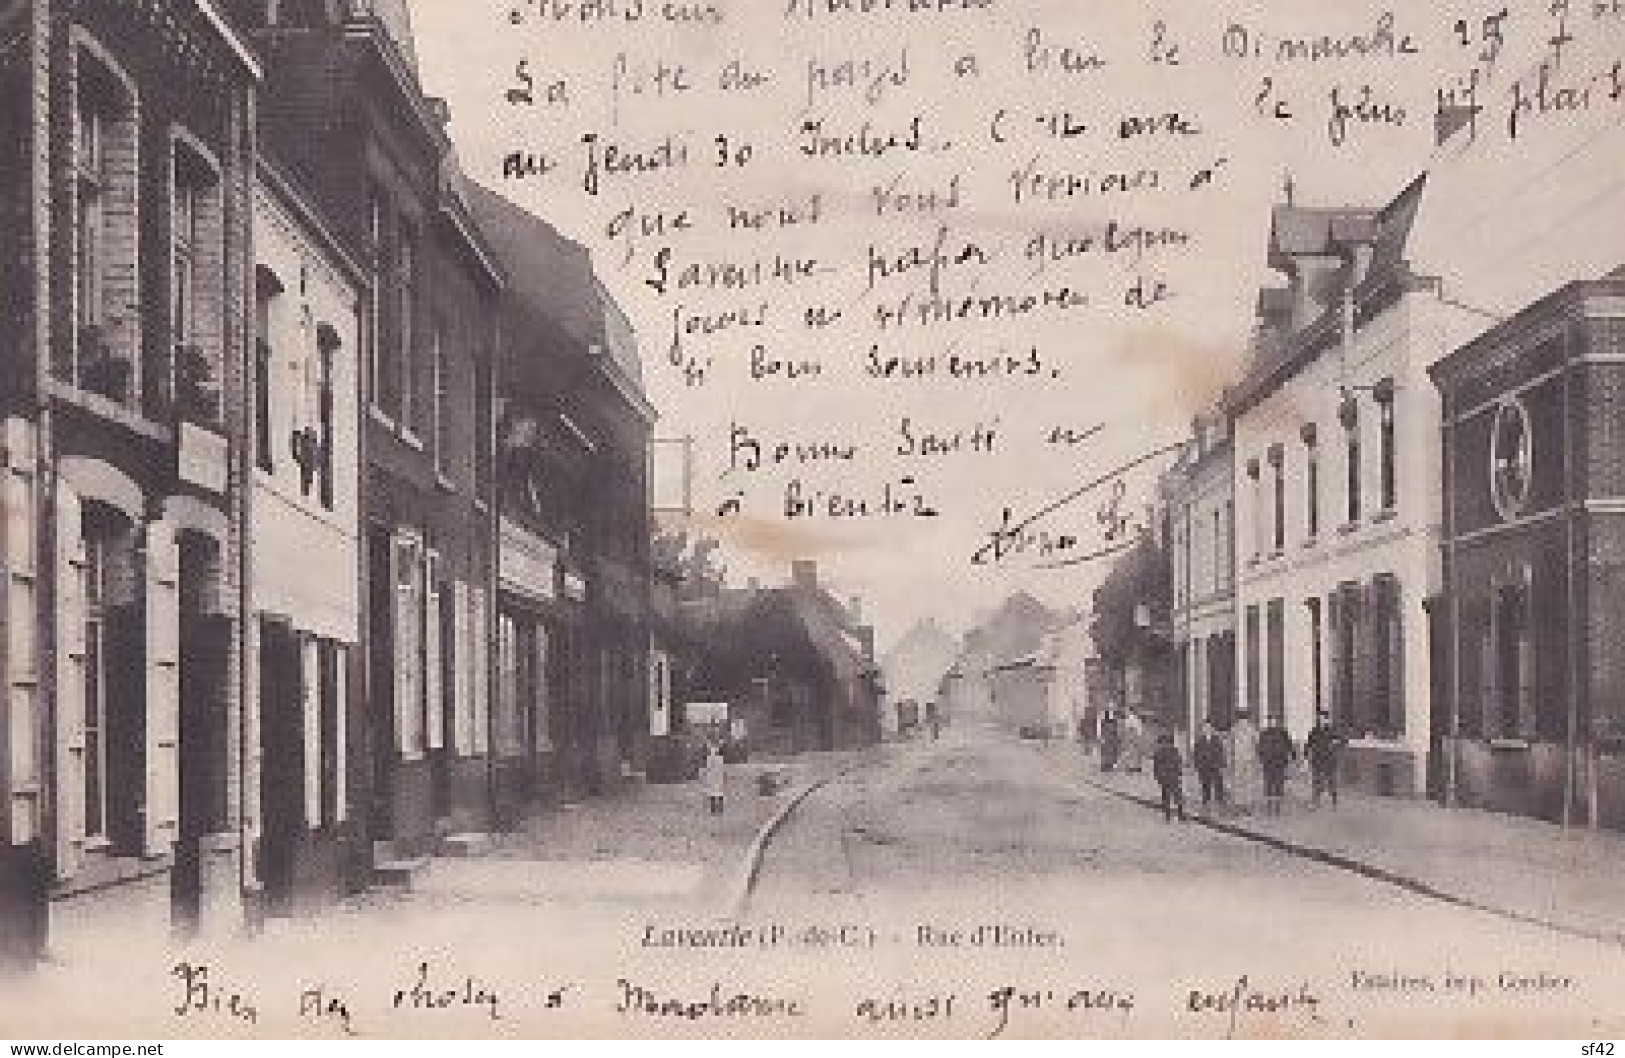 Monsieur
La fête du pays a lieu le Dimanche 25
au Jeudi 30 Inclus. C'est avec le plus vif plaisir
que nous vous verrions à
Laventie passer quelques
jours en remémorer de
si bons souvenirs.
Bonne Santé et
à bientôt
Laventie (P.-de-C.) - Rue d'Enfer.
Estaires, imp. Cordier.
Bien des choses à Madame ainsi qu'aux enfants.
sf42